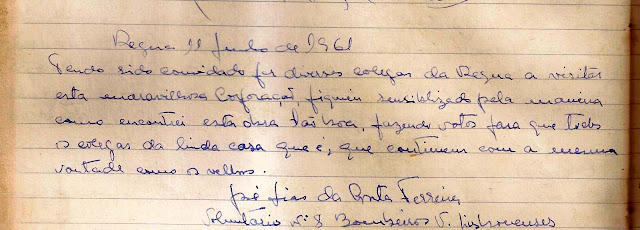 Regua 11 Junho de 1961
Tendo sido convidado por diversos colegas da Regua a visitar
esta maravilhosa Corporação, fiquei sensibilizado pela maneira
como encontrei esta obra tão boa, fazendo votos para que todos
os colegas da linda casa que é, que continuem com a mesma
vontade como os velhos.
José Dias da Costa Ferreira
Voluntário nº 8 Bombeiros V. Lisbonenses